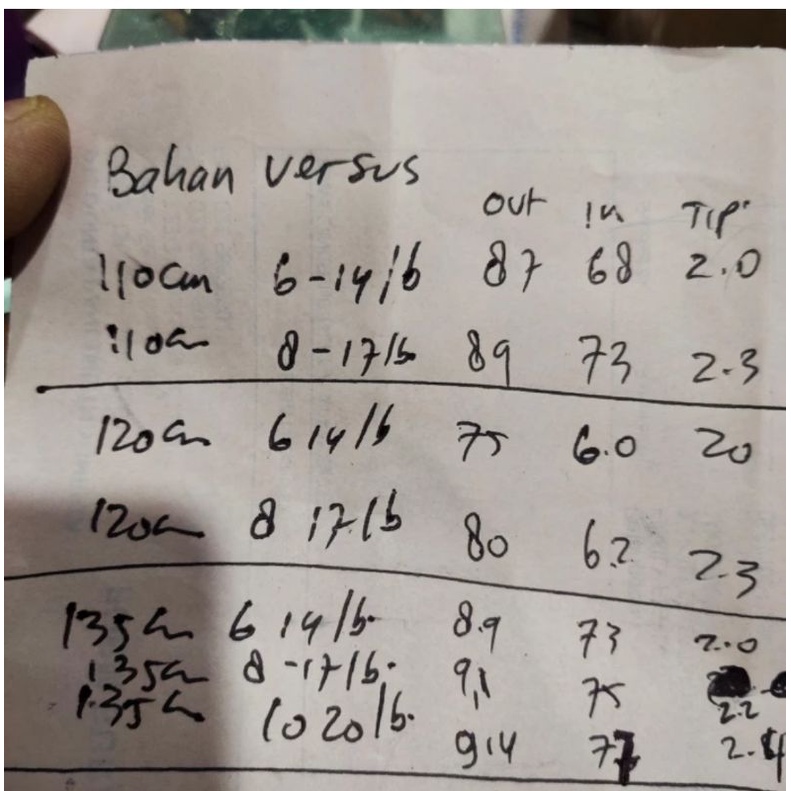 Bahan versus
out in Tip
110cm 6-14 lb 87 68 2.0
110cm 8-17 lb 89 73 2.3
120cm 6 14 lb 75 6.0 20
120cm 8 17 lb 80 6.2 2.3
135cm 6 14 lb. 8.9 73 2.0
135cm 8-17 lb. 9,1 75 2.2
135cm 10 20 lb. 9,4 77 2.4